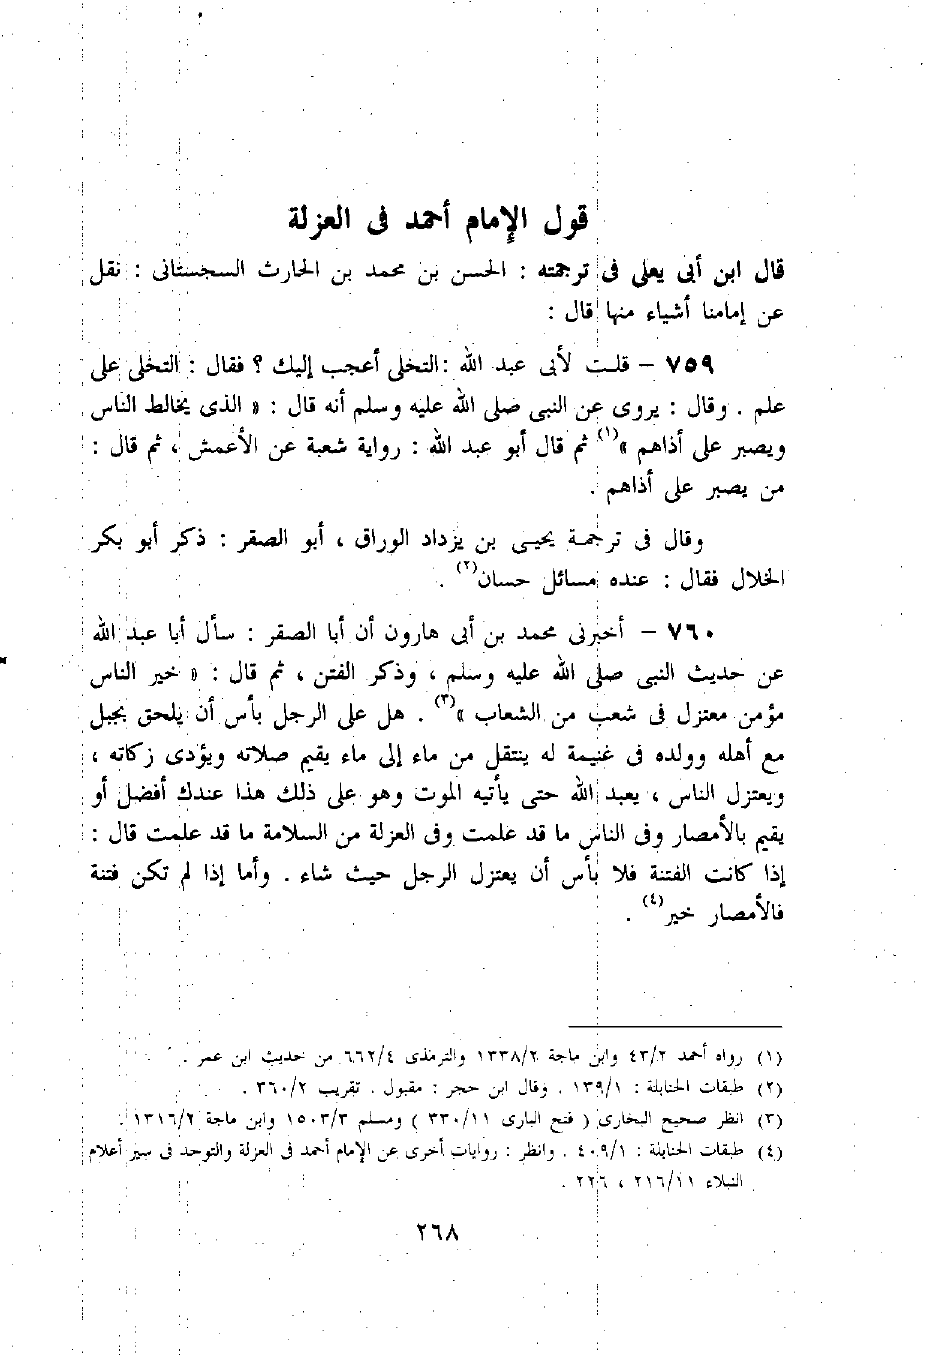 قول الإمام أحمد فى العزلة
قال ابن أبى يعلى فى ترجمته : الحسن بن محمد بن الحارث السجستانى : نقل
عن إمامنا أشياء منها قال :
٧٥٩ – قلت لأبى عبد الله : التخلى أعجب إليك ؟ فقال : التخلى على
علم . وقال : يروى عن النبى صلى الله عليه وسلم أنه قال : « الذى يخالط الناس
ويصبر على أذاهم »(١) ثم قال أبو عبد الله : رواية شعبة عن الأعمش ، ثم قال :
من يصبر على أذاهم .
وقال فى ترجمة يحيى بن يزداد الوراق ، أبو الصقر : ذكر أبو بكر
الخلال فقال : عنده مسائل حسان(٢) .
٧٦٠ – أخبرنى محمد بن أبى هارون أن أبا الصقر : سأل أبا عبد الله
عن حديث النبى صلى الله عليه وسلم ، وذكر الفتن ، ثم قال : « خير الناس
مؤمن معتزل فى شعب من الشعاب »(٣) . هل على الرجل بأس أن يلحق بجبل
مع أهله وولده فى غنيمة له ينتقل من ماء إلى ماء يقيم صلاته ويؤدى زكاته ،
ويعتزل الناس ، يعبد الله حتى يأتيه الموت وهو على ذلك هذا عندك أفضل أو
يقيم بالأمصار وفى الناس ما قد علمت وفى العزلة من السلامة ما قد علمت قال :
إذا كانت الفتنة فلا بأس أن يعتزل الرجل حيث شاء . وأما إذا لم تكن فتنة
فالأمصار خير(٤) .
(١) رواه أحمد ٤٣/٢ وابن ماجة ١٣٣٨/٢ والترمذى ٦٦٢/٤ من حديث ابن عمر .
(٢) طبقات الحنابلة : ١٣٩/١ . وقال ابن حجر : مقبول . تقريب ٣٦٠/٢ .
(٣) انظر صحيح البخارى ( فتح البارى ٣٣٠/١١ ) ومسلم ١٥٠٣/٣ وابن ماجة ١٣١٦/٢ .
(٤) طبقات الحنابلة : ٤٠٩/١ . وانظر : روايات أخرى عن الإمام أحمد فى العزلة والتوحد فى سير أعلام
النبلاء ٢١٦/١١ ، ٢٢٦ .
٢٦٨